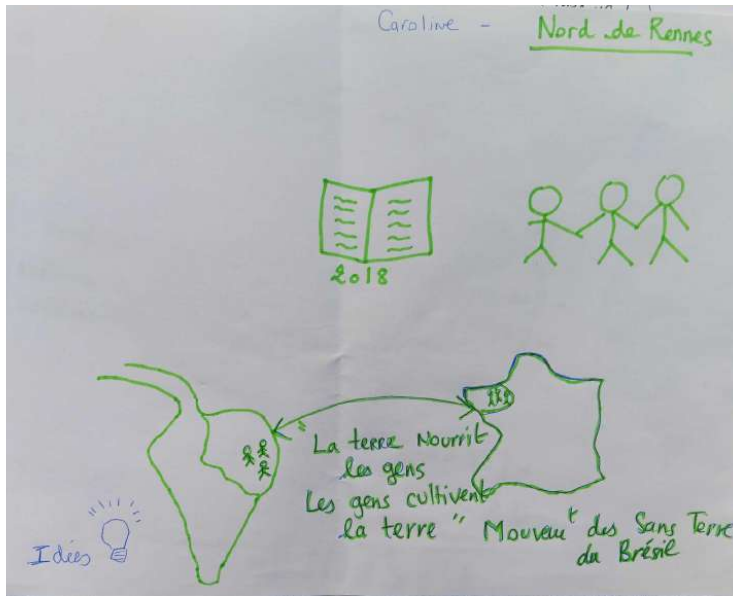 Caroline - Nord de Rennes
2018
"La terre Nourrit
les gens
Les gens cultivent
la terre" Mouvemt des Sans Terre
du Brésil
Idées